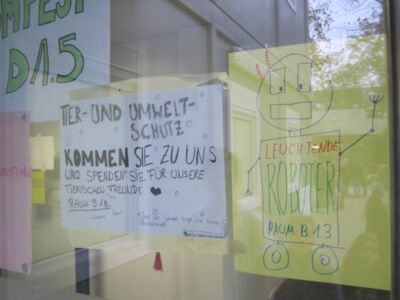 D1.5
TIER- UND UMWELT-
SCHUTZ
KOMMEN SIE ZU UNS
UND SPENDEN SIE FÜR UNSERE
TIERISCHEN FREUNDE
RAUM B 1.8
LEUCHTENDE
ROBOTER
RAUM B 1.3